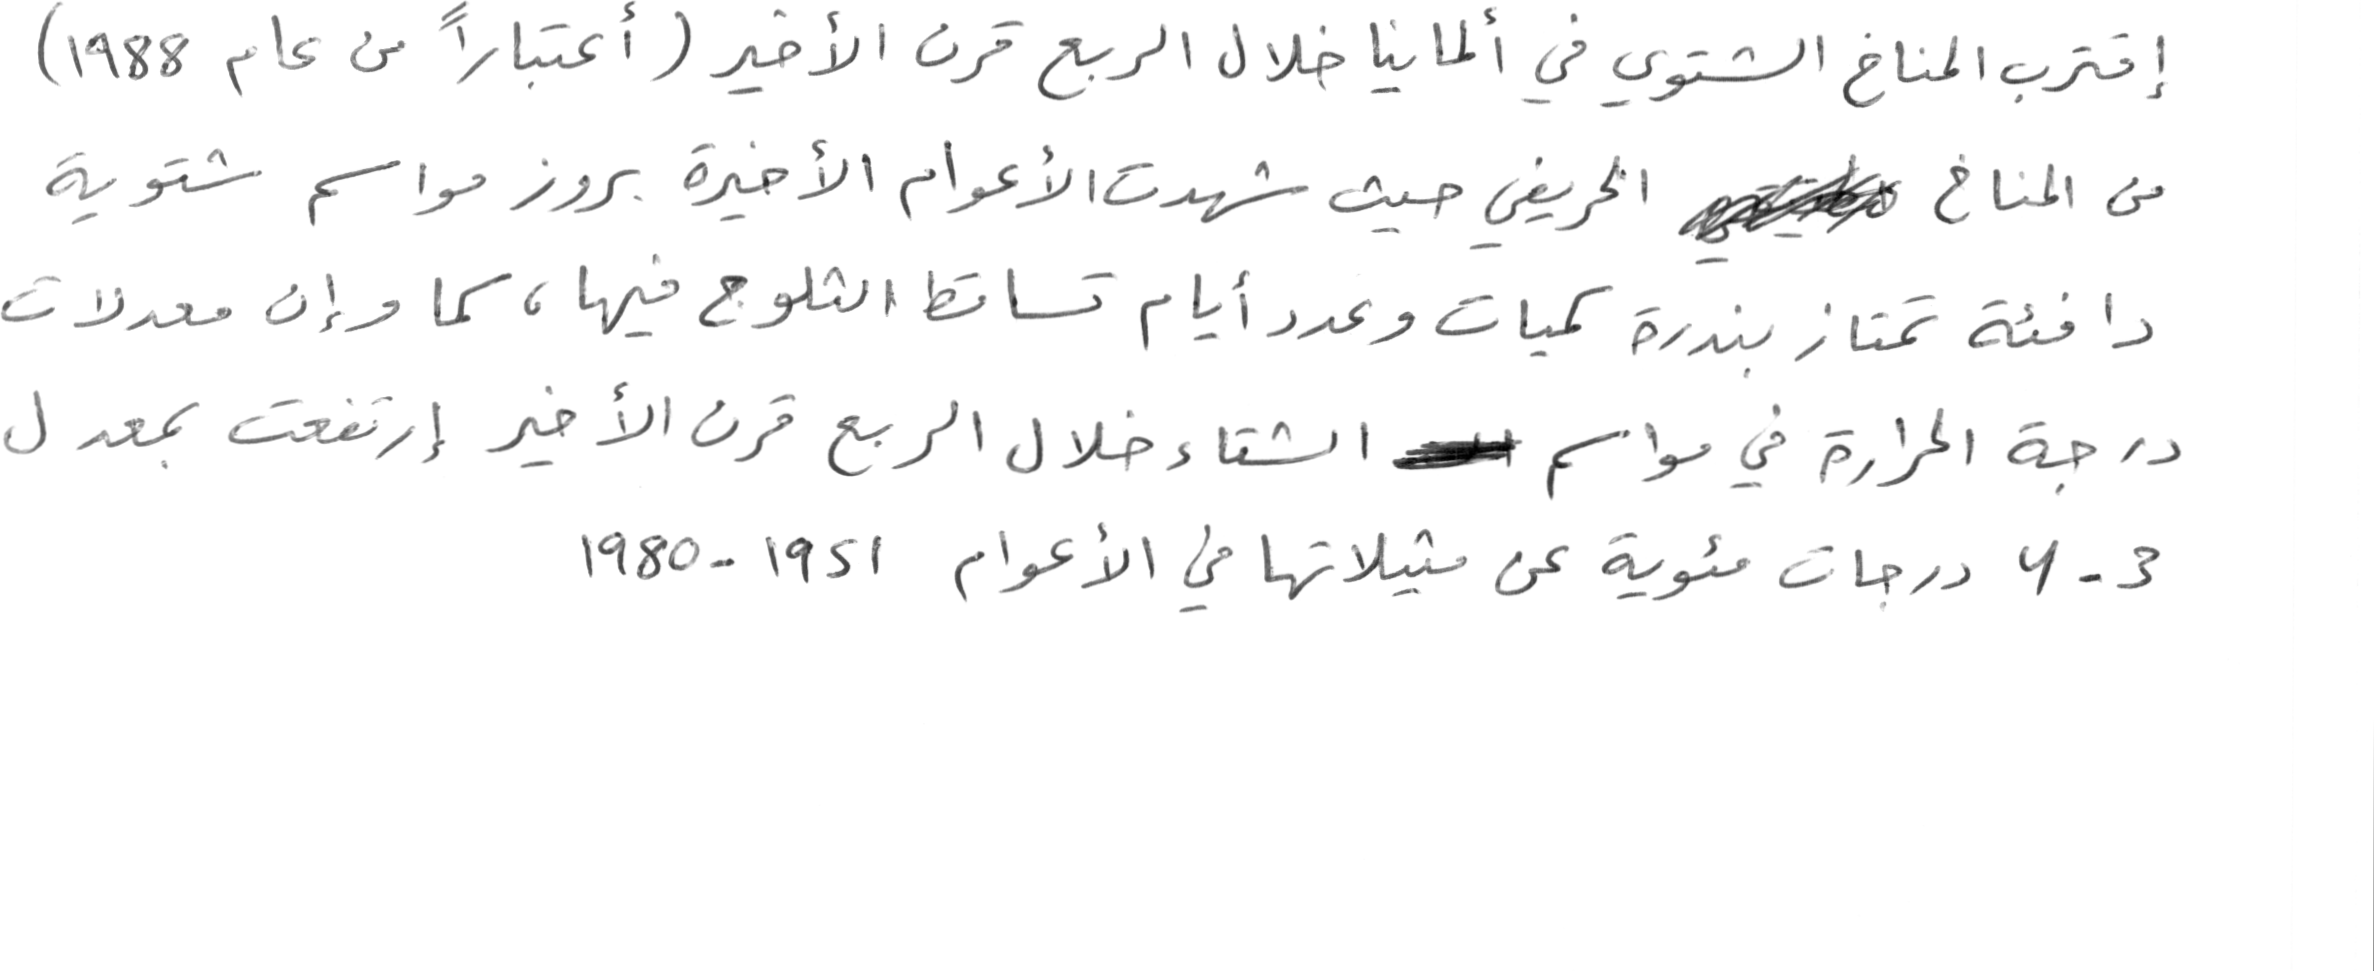 إقترب المناخ الشتوي في ألمانيا خلال الربع قرن الأخير (أعتباراً من عام 1988)
من المناخ الخريفي حيث شهدت الأعوام الأخيرة بروز مواسم شتوية
دافئة تمتاز بندرة كميات وعدد أيام تساقط الثلوج فيها، كما وإن معدلات
درجة الحرارة في مواسم الشتاء خلال الربع قرن الأخير إرتفعت بمعدل
3-4 درجات مئوية عن مثيلاتها في الأعوام 1951-1980